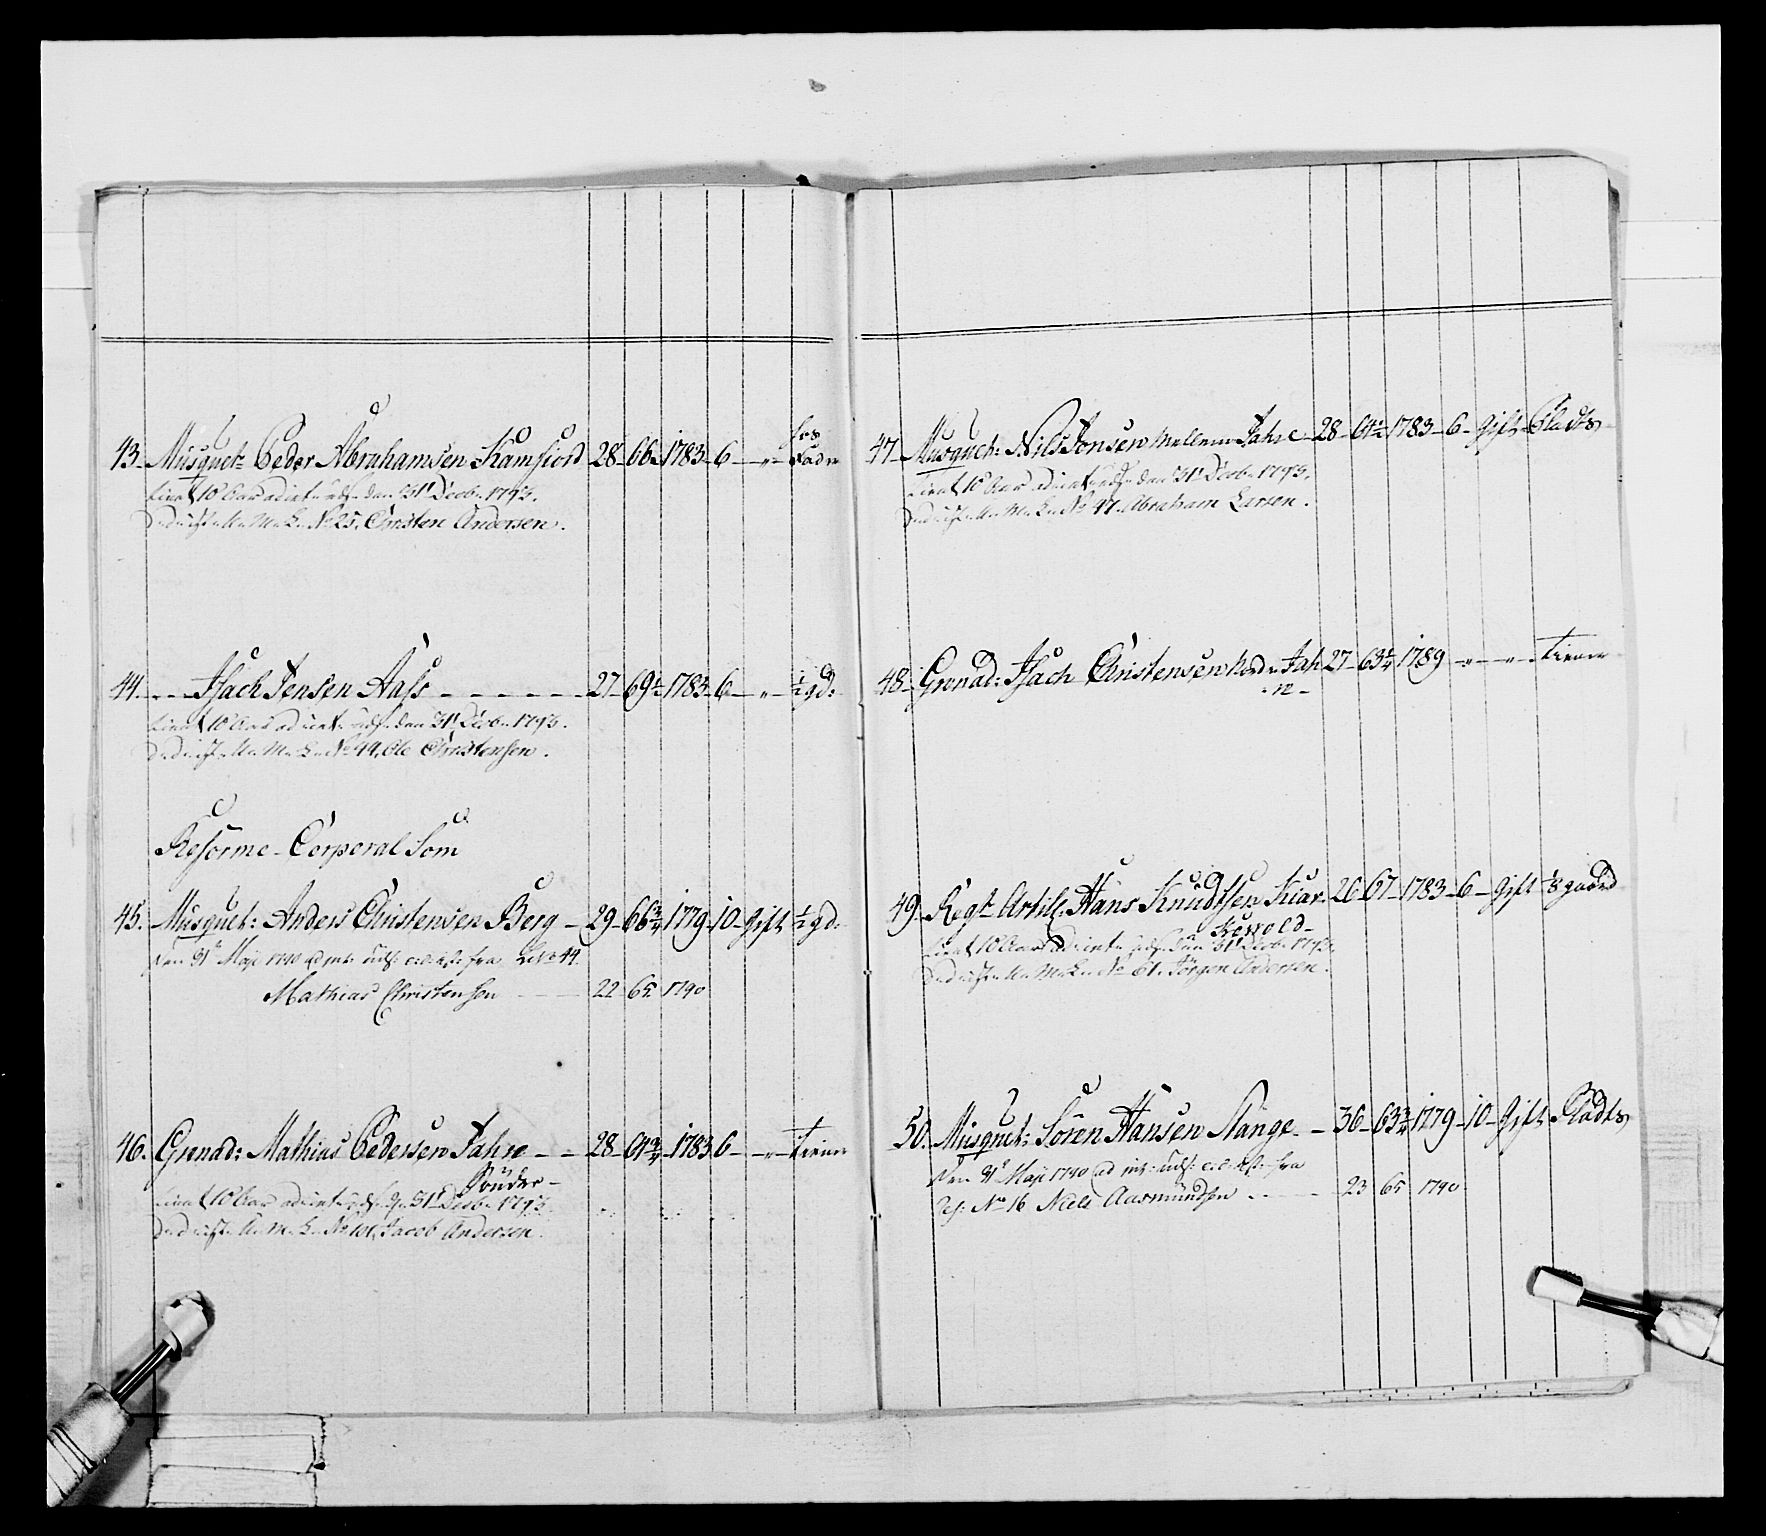 hos
43. Musquet: Peder Abrahamsen Kamfiord 28 66 1783 6 " Fader
tient 10 Aar ad int: uds: den 31t Decb: 1793.
N: 25. Christen Andersen.
44. Isach Jensen Aass 27 69 1/2 1783 6 " 1/2 gd:
tient 10 Aar ad int: uds: den 31t Decb: 1793.
N: 44. Ole Christensen.
Reforme Corporal Som
45. Musquet: Anders Christensen Berg 29 66 3/4 1779 10 Gift 1/2 gd:
Den 31t Maji 1790 ad int: uds: fra N: 44
Mathias Christensen 22 65 1790
46. Grenad: Mathias Pedersen Jahre 28 64 3/4 1783 6 " Tiener
Sönder
tient 10 Aar ad int: uds: 31t Decb: 1793.
N: 101. Jacob Andersen.
47. Musquet: Nils Jonsen Mellem Jahre 28 64 1/2 1783 6 Gift Plads
tient 10 Aar ad int: uds: den 31t Decb: 1793.
N: 47. Abraham Larsen.
48. Grenad: Isach Christensen Nordn: Jah 27 63 1/4 1789 " " Tiener
49. Regt: Artill: Hans Knudtsen Kiær 26 67 1783 6 Gift 1/8 gaard
tient 10 Aar ad int: uds: den 31t Decb: 1793.
N: 61. Jörgen Andersen.
50. Musquet: Sören Hansen Stange 36 63 3/4 1779 10 Gift Plads
Den 31t Maji 1790 ad int: uds: fra
Res: No 16 Niels Aasmundsen 23 65 1790